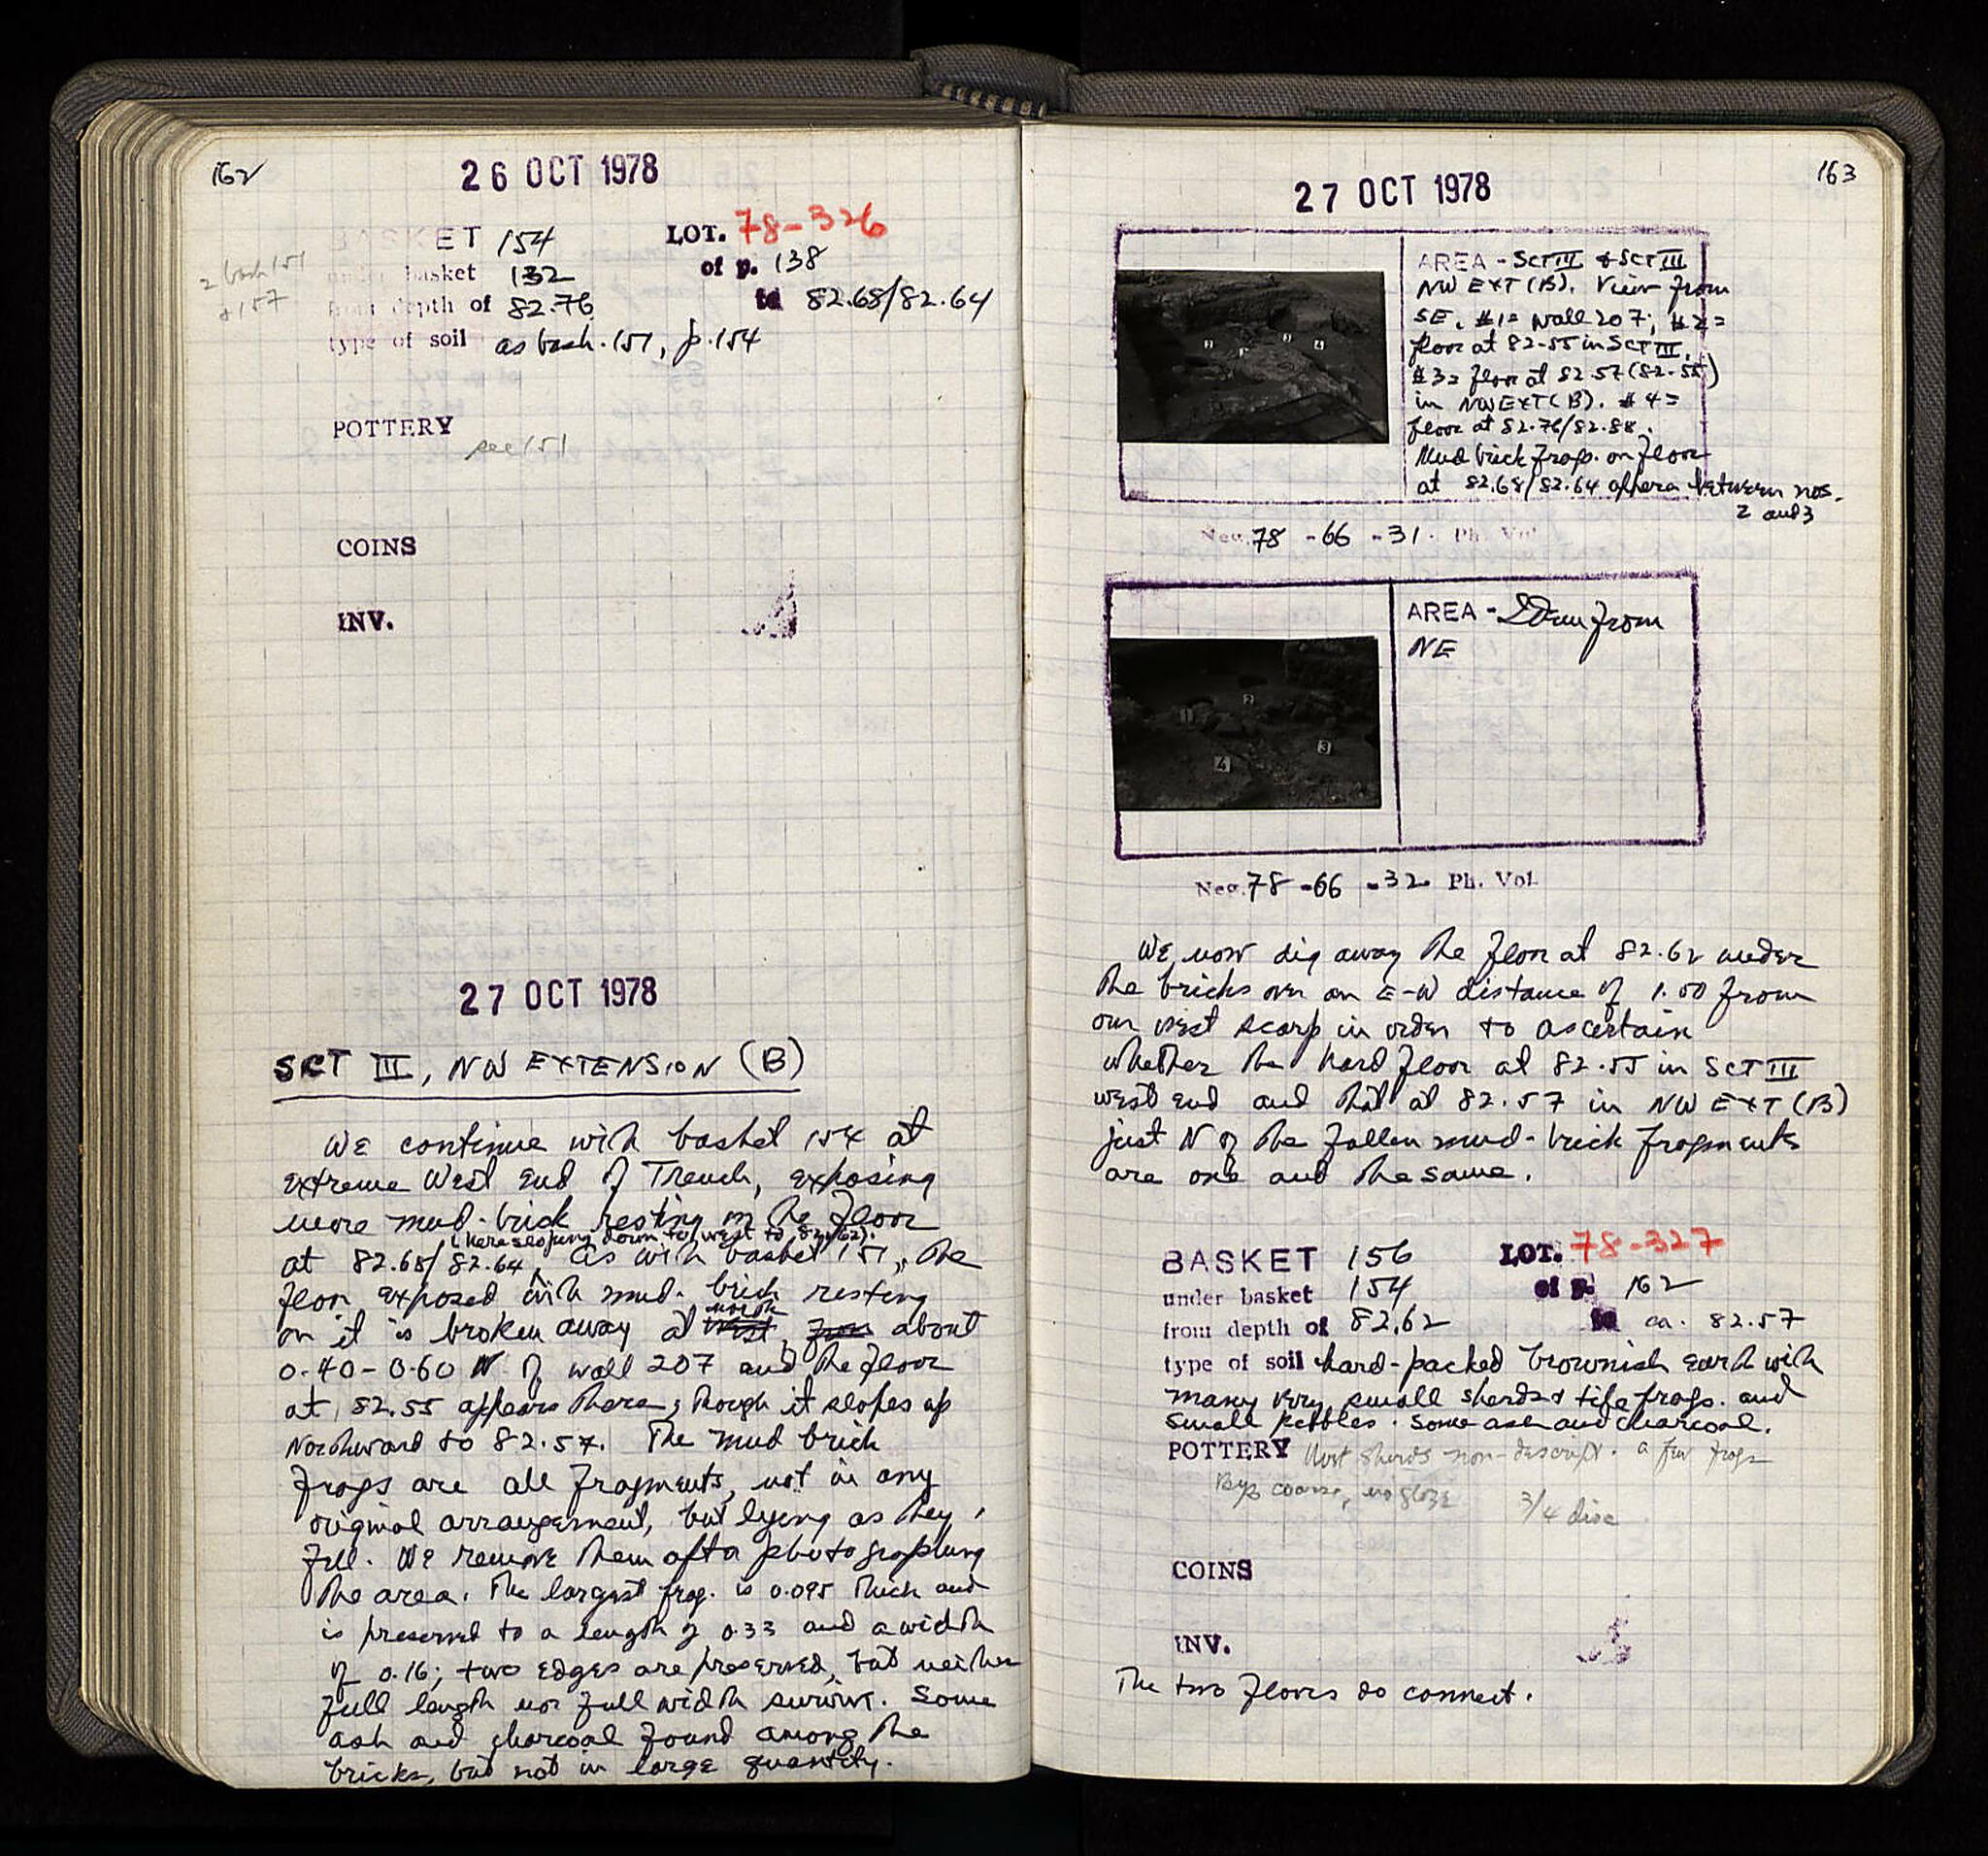 162
26 OCT 1978
BASKET 154 LOT. 78-326
under basket 132 of p. 138
from depth of 82.76 to 82.68/82.64
type of soil as bask. 151, p. 154
2 bask 151
& 157
POTTERY
see 151
COINS
INV.
27 OCT 1978
SCT III, NW EXTENSION (B)
We continue with basket 154 at
extreme West end of Trench, exposing
more mud-brick resting on the floor
(here sloping down to west to 82.62).
at 82.68/82.64. As with basket 151, the
floor exposed with mud-brick resting
north
on it is broken away at west, from about
0.40-0.60 N of wall 207 and the floor
at 82.55 appears there, though it slopes up
Northward to 82.57. The mud brick
frags are all fragments, not in any
original arrangement, but lying as they
fell. We remove them after photographing
the area. The largest frag. is 0.095 thick and
is preserved to a length of 0.33 and a width
of 0.16; two edges are preserved, but neither
full length nor full width survive. Some
ash and charcoal found among the
bricks, but not in large quantity.
163
27 OCT 1978
AREA - SCT III & SCT III
NW EXT (B). View from
SE. #1= wall 207; #2=
floor at 82-55 in SCT III.
#3= floor at 82.57 (82.55)
in NW EXT (B). #4=
floor at 82.76/82.88.
Mud brick frags. on floor
at 82.68/82.64 appear between nos.
2 and 3
Neg. 78 - 66 - 31. Ph. Vol
AREA - from
NE
1
2
3
4
Neg. 78 - 66 - 32. Ph. Vol.
We now dig away the floor at 82.62 under
the bricks over an E-W distance of 1.00 from
our west scarp in order to ascertain
whether the hard floor at 82.55 in SCT III
west end and that at 82.57 in NW EXT (B)
just N of the fallen mud-brick fragments
are one and the same.
BASKET 156 LOT. 78-327
under basket 154 of p. 162
from depth of 82.62 to ca. 82.57
type of soil hard-packed brownish earth with
many very small sherds & tile frags. and
small pebbles. Some ash and charcoal.
POTTERY Most sherds non-descript. a few frags
Byz coarse, no glaze 3/4 disc
COINS
INV.
The two floors do connect.